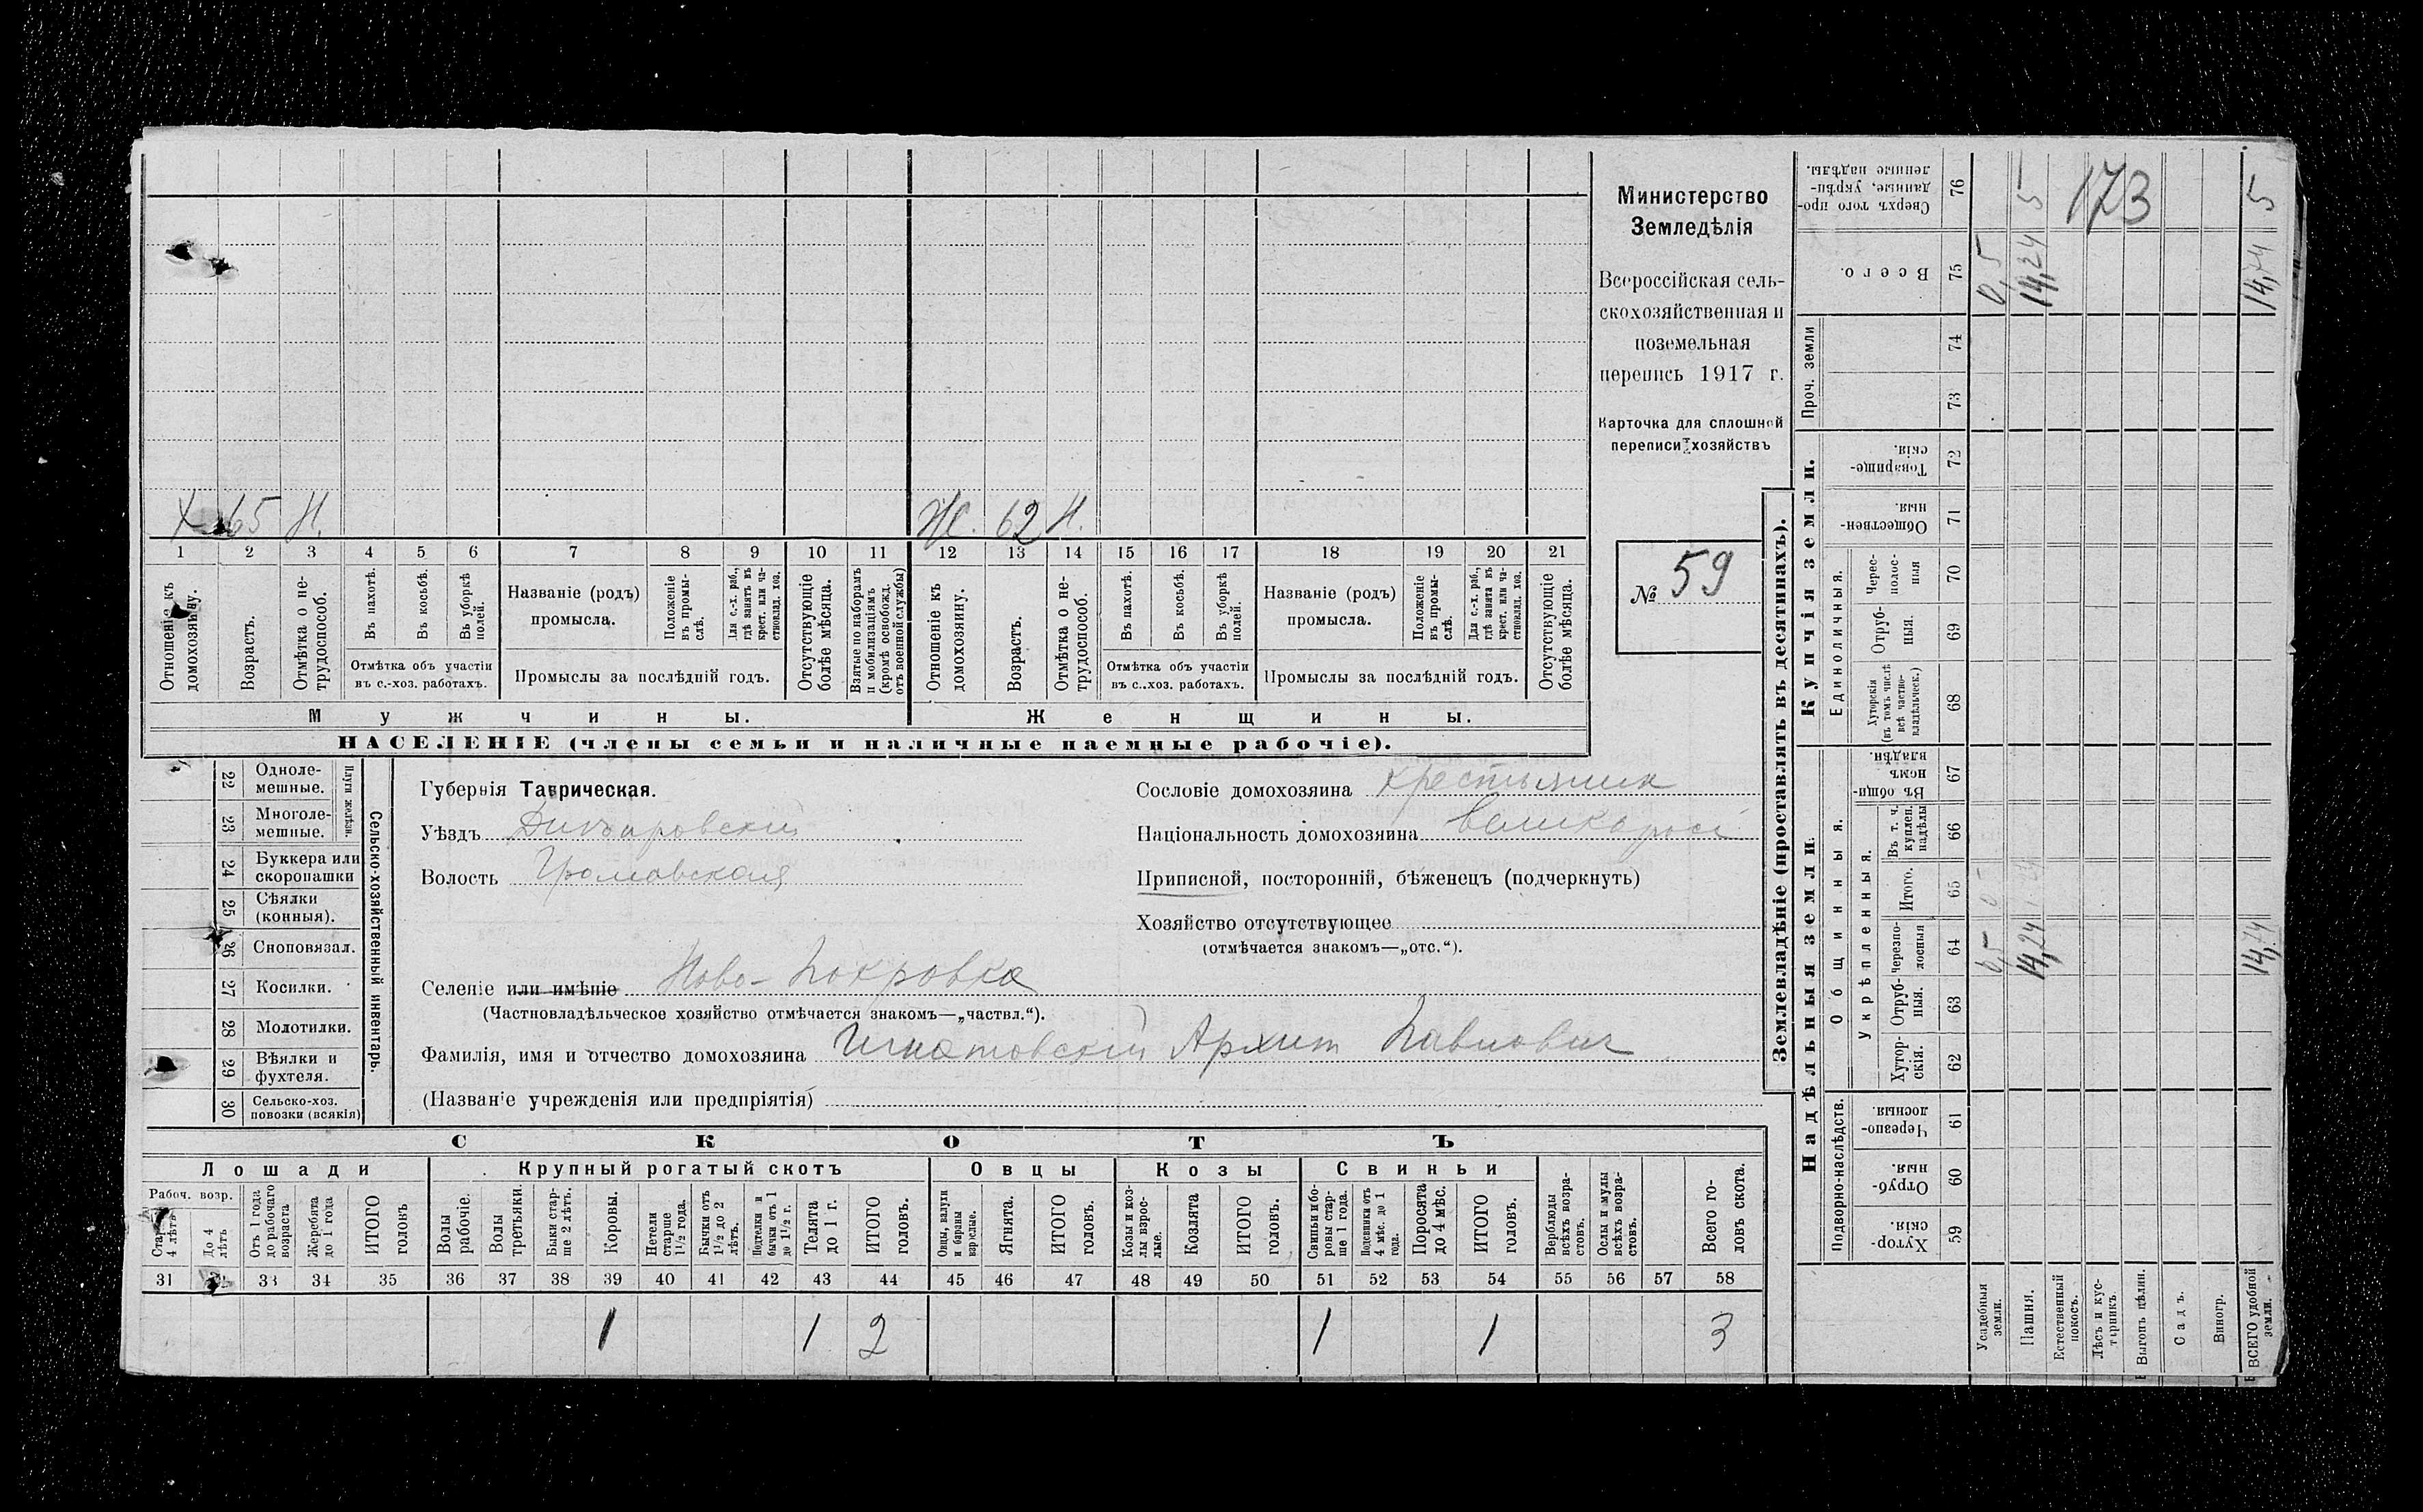 Х 65 Н.
Ж. 62 Н.
1 2 3 4 5 6 7 8 9 10 11 12 13 14 15 16 17 18 19 20 21
Отношеніе къ домохозяину.
Возрастъ.
Отмѣтка о не-
трудоспособ.
Въ пахотѣ.
Въ косьбѣ.
Въ уборкѣ
полей.
Отмѣтка объ участіи
въ с.-хоз. работахъ.
Названіе (родъ)
промысла.
Положеніе
въ промы-
слѣ.
Для с.-х. раб.,
гдѣ занятъ въ
крест. или ча-
стновлад. хоз.
Промыслы за послѣдній годъ.
Отсутствующіе
болѣе мѣсяца.
Взятые по наборамъ
и мобилизаціямъ
(кромѣ освобожд.
отъ военной службы)
Отношеніе къ
домохозяину.
Возрастъ.
Отмѣтка о не-
трудоспособ.
Въ пахотѣ.
Въ косьбѣ.
Въ уборкѣ
полей.
Отмѣтка объ участіи
въ с.-хоз. работахъ.
Названіе (родъ)
промысла.
Положеніе
въ промы-
слѣ.
Для с.-х. раб.,
гдѣ занята въ
крест. или ча-
стновлад. хоз.
Промыслы за послѣдній годъ.
Отсутствующіе
болѣе мѣсяца.
Мужчины.
Женщины.
НАСЕЛЕНІЕ (члены семьи и наличные наемные рабочіе).
Министерство
Земледѣлія
Всероссійская сель-
скохозяйственная и
поземельная
перепись 1917 г.
Карточка для сплошной
переписи хозяйствъ
№ 59
22 Одноле-
мешные.
23 Многоле-
мешные.
Плуги желѣзн.
24 Буккера или
скоропашки
25 Сѣялки
(конныя).
26 Сноповязал.
27 Косилки.
28 Молотилки.
29 Вѣялки и
фухтеля.
30 Сельско-хоз.
повозки (всякія)
Сельско-хозяйственный инвентарь.
Губернія Таврическая.
Уѣздъ
Волость Громовская
Селеніе или имѣніе Ново-Покровка
(Частновладѣльческое хозяйство отмѣчается знакомъ—„частвл.“).
Фамилія, имя и отчество домохозяина Игнатовскій Архип Павлович
(Названіе учрежденія или предпріятія)
Сословіе домохозяина крестьянин
Національность домохозяина великоросс
Приписной, посторонній, бѣженецъ (подчеркнуть)
Хозяйство отсутствующее
(отмѣчается знакомъ—„отс.“).
СКОТЪ
Лошади
Крупный рогатый скотъ
Овцы
Козы
Свиньи
Рабоч. возр.
Старше
4 лѣтъ
До 4
лѣтъ
Отъ 1 года
до рабочаго
возраста
Жеребята
до 1 года
ИТОГО
головъ
Волы
рабочіе.
Волы
третьяки.
Быки стар-
ше 2 лѣтъ.
Коровы.
Нетели
старше
1½ года.
Бычки отъ
1½ до 2
лѣтъ.
Подтелки и
бычки отъ 1
до 1½ г.
Телята
до 1 г.
ИТОГО
головъ.
Овцы, валухи
и бараны
взрослые.
Ягнята.
ИТОГО
головъ.
Козы и коз-
лы взрос-
лые.
Козлята
ИТОГО
головъ.
Свиньи и бо-
ровы стар-
ше 1 года.
Подсвинки отъ
4 мѣс. до 1
года.
Поросята
до 4 мѣс.
ИТОГО
головъ.
Верблюды
всѣхъ возра-
стовъ.
Ослы и мулы
всѣхъ возра-
стовъ.
Всего го-
ловъ скота.
31 32 33 34 35 36 37 38 39 40 41 42 43 44 45 46 47 48 49 50 51 52 53 54 55 56 57 58
1 1 2 1 1 3
Землевладѣніе (проставлять въ десятинахъ).
Надѣльныя земли.
Купчія земли.
Проч. земли
Подворно-наслѣдств.
Общинныя.
Укрѣпленныя.
Единоличныя.
Сверхъ того про-
данные, укрѣп-
ленные надѣлы.
76
Всего.
75
74
73
Товарище-
скія.
72
Обществен-
ныя
71
Черес-
полос-
ныя
70
Отруб-
ныя.
69
Хуторскія
(въ томъ числѣ
всѣ частно-
владѣльческ.)
68
Въ общин-
номъ
владѣн.
67
Въ т. ч.
куплен.
надѣлы
66
Итого.
65
Черезпо-
лосныя
64
Отруб-
ныя.
63
Хутор-
скія.
62
Черезпо-
лосныя
61
Отруб-
ныя.
60
Хутор-
скія.
59
Усадебныя
земли.
Пашня.
Естественный
покосъ.
Лѣсъ и кус-
тарникъ
Выгонъ цѣлин.
Садъ.
Виногр.
ВСЕГО удобной
земли.
5 173 5
0,5 14,24 14,74
0,5 14,24 14,74